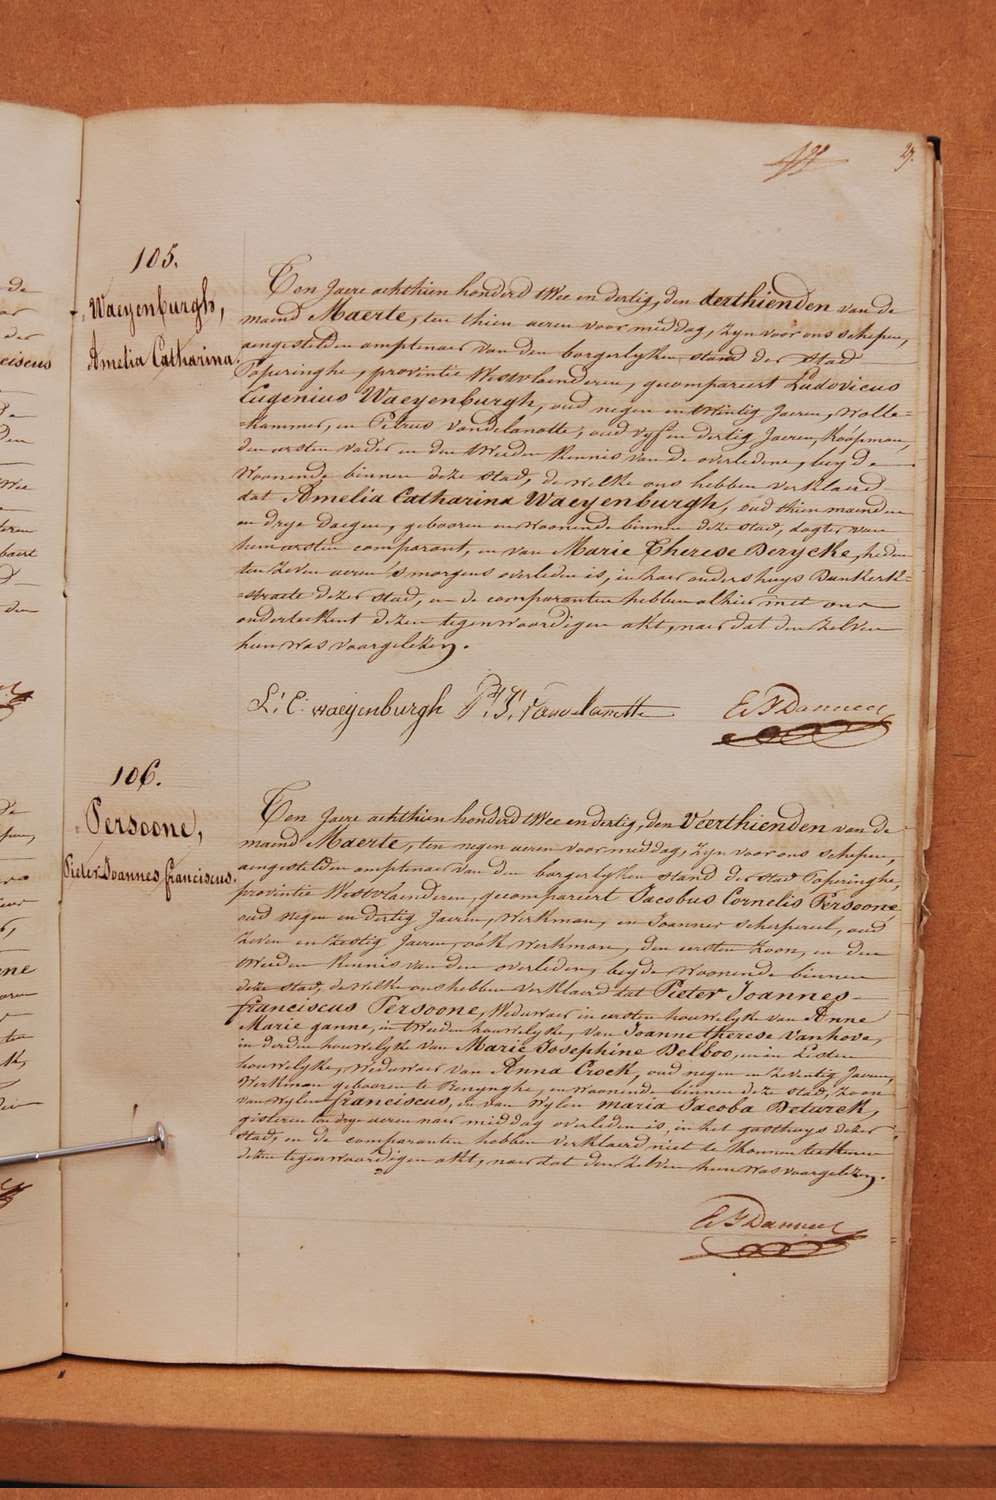 27.
105.
Waeyenburgh,
Amelia Catharina.
Ten Jaere achthien honderd twee en dertig, den derthienden van de
maend Maerte, ten thien ueren voor middag, zyn voor ons schepen,
aengestelden amptenaer van den borgerlyken stand der stad
Poperinghe, provintie Westvlaenderen, gecompareert Ludovicus
Eugenius Waeyenburgh, oud negen en twintig Jaeren, Wolle=
=kammer, en Petrus Vandelanotte, oud vyf en dertig Jaeren, Koópman,
den ersten vader en den tweeden Kennis van de overledene, beyde
Woonende binnen deze stad, de welke ons hebben verklaerd
dat Amelia Catharina Waeyenburgh, oud thien maenden
en drye daegen, gebooren en woonende binnen deze stad, dogter van
hem ersten comparant, en van Marie Therese Derycke, heden
ten zeven ueren 's morgens overleden is, in haer ouders huys Dunkerk=
=straete dezer stad, en de comparanten hebben alhier met ons
onderteekent dezen tegenwoordigen akt, naer dat den zelven
hun was voorgelezen.
L. E. waeyenburgh P. J. Vandelanotte
106.
Persoone,
Pieter Joannes franciscus.
Ten Jaere achthien honderd twee en dertig, den Veerthienden van de
maend Maerte, ten negen ueren voor middag, zyn voor ons schepen,
aengestelden amptenaer van den borgerlyken stand der stad Poperinghe,
provintie Westvlaenderen, gecompareert Jacobus Cornelis Persoone,
oud negen en dertig Jaeren, Werkman, en Joannes scherpereel, oud
zeven en zestig Jaeren, oók werkman, den eersten zoon, en den
tweeden Kennis van den overleden, beyde woonende binnen
deze stad, de welke ons hebben verklaerd dat Pieter Joannes
franciscus Persoone, Weduwaer in eersten houwelyke van Anne
Marie ganne, in tweeden houwelyke, van Joanne therese vanhove,
in derden houwelyke van Marie Josephine Delboo, en in Lesten
houwelyke, Weduwaer van Anna Crock, oud negen en zeventig Jaeren,
Werkman gebooren te Renynghe, en woonende binnen deze stad, zoon
van wylen franciscus, en van wylen maria Jacoba Deturck,
gisteren ten drye ueren naer middag overleden is, in het gasthuys dezer
stad, en de comparanten hebben verklaerd niet te konnen teekenen
dezen tegenwoordigen akt, naer dat den zelven hun was voorgelezen.